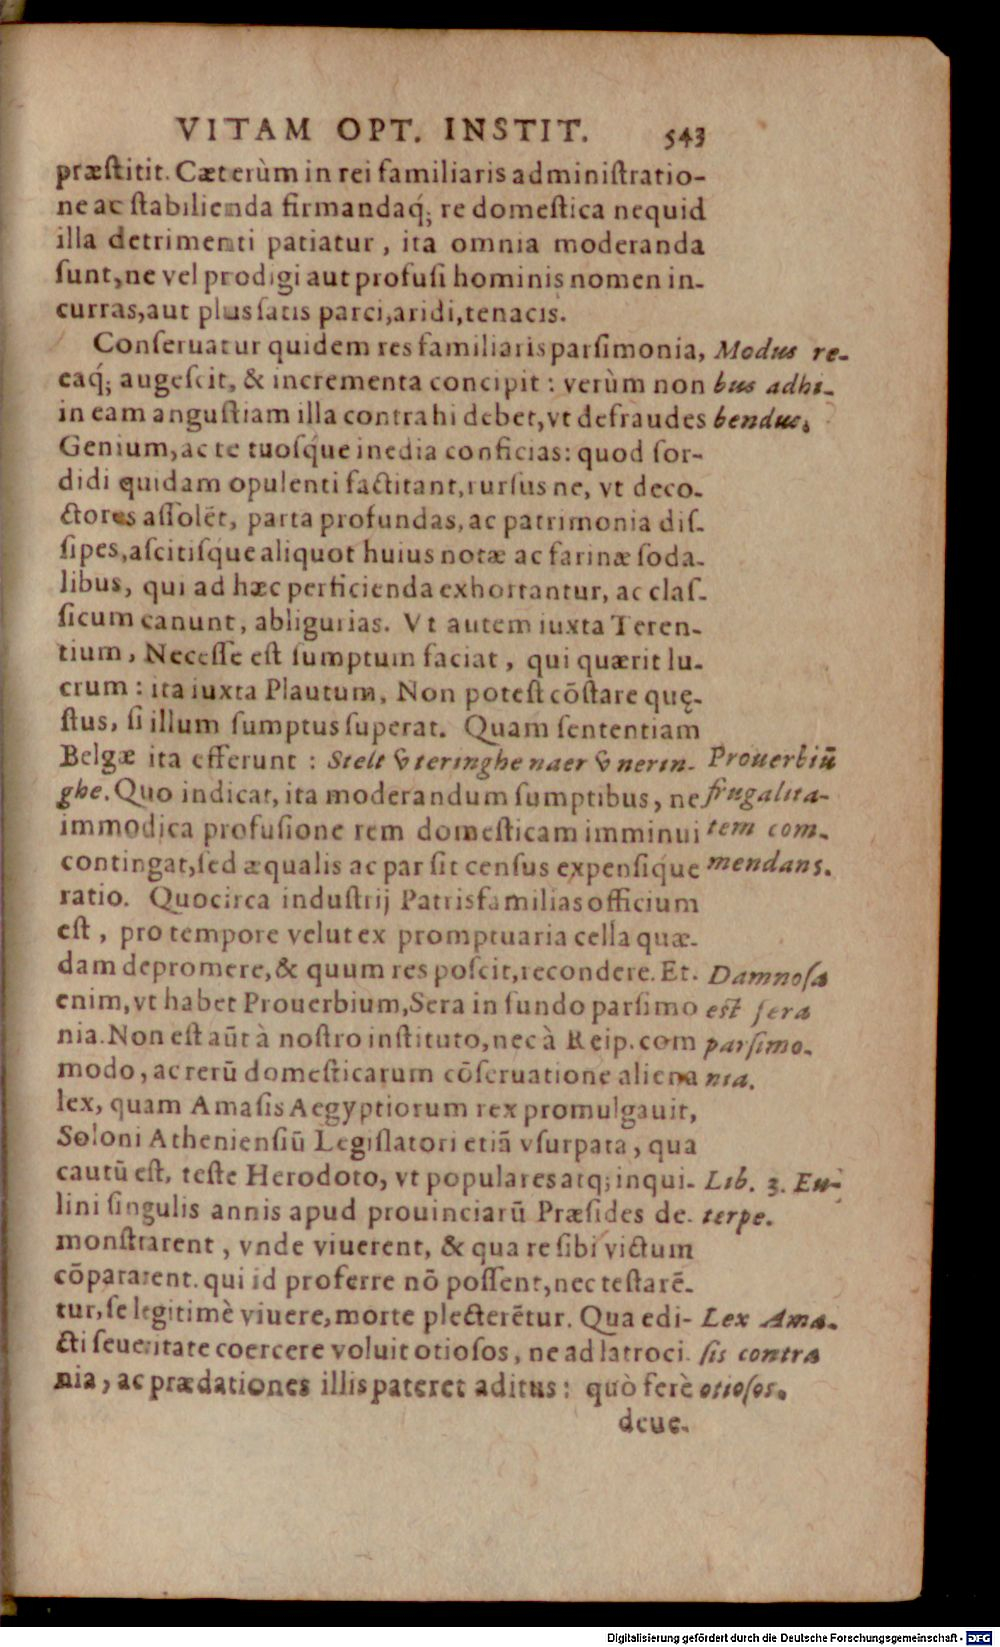 VITAM OPT. INSTIT. 543
præſtitit. Cæterùm in rei familiaris adminiſtratio-
ne ac ſtabilienda firmandaq́; re domeſtica nequid
illa detrimenti patiatur, ita omnia moderanda
ſunt, ne vel prodigi aut profuſi hominis nomen in-
curras, aut plus ſatis parci, aridi, tenacis.
Conſeruatur quidem res familiaris parſimonia,
eaq́; augeſcit, & incrementa concipit: verùm non
in eam anguſtiam illa contrahi debet, vt defraudes
Genium, ac te tuoſq́ue inedia conficias: quod ſor-
didi quidam opulenti factitant, rurſus ne, vt deco-
ctores aſſolēt, parta profundas, ac patrimonia diſ-
ſipes, aſcitiſque aliquot huius notæ ac farinæ ſoda-
libus, qui ad hæc perficienda exhortantur, ac claſ-
ſicum canunt, abligurias. Vt autem iuxta Teren-
tium, Neceſſe eſt ſumptum faciat, qui quærit lu-
crum: ita iuxta Plautum, Non poteſt cōſtare quę-
ſtus, ſi illum ſumptus ſuperat. Quam ſententiam
Belgæ ita efferunt: Stelt v teringhe naer v nerin-
ghe. Quo indicat, ita moderandum ſumptibus, ne
immodica profuſione rem domeſticam imminui
contingat, ſed æqualis ac par ſit cenſus expenſique
ratio. Quocirca induſtrij Patrisfamilias officium
eſt, pro tempore velut ex promptuaria cella quæ-
dam depromere, & quum res poſcit, recondere. Et-
enim, vt habet Prouerbium, Sera in fundo parſimo
nia. Non eſt aūt à noſtro inſtituto, nec à Reip. com
modo, ac rerū domeſticarum cōſeruatione aliena
lex, quam Amaſis Aegyptiorum rex promulgauit,
Soloni Athenienſiū Legiſlatori etiā vſurpata, qua
cautū eſt, teſte Herodoto, vt populares atq; inqui-
lini ſingulis annis apud prouinciarū Præſides de-
monſtrarent, vnde viuerent, & qua re ſibi victum
cōpararent. qui id proferre nō poſſent, nec teſtarē-
tur, ſe legitimè viuere, morte plecterētur. Qua edi-
cti ſeueritate coercere voluit otioſos, ne ad latroci-
nia, ac prædationes illis pateret aditus: quò ferè
deue-
Modus re-
bus adhi-
bendus.
Prouerbiū
frugalita-
tem com-
mendans.
Damnoſa
eſt ſera
parſimo-
nia.
Lib. 3. Eu-
terpe.
Lex Ama-
ſis contra
otioſos.
Digitalisierung gefördert durch die Deutsche Forschungsgemeinschaft - DFG